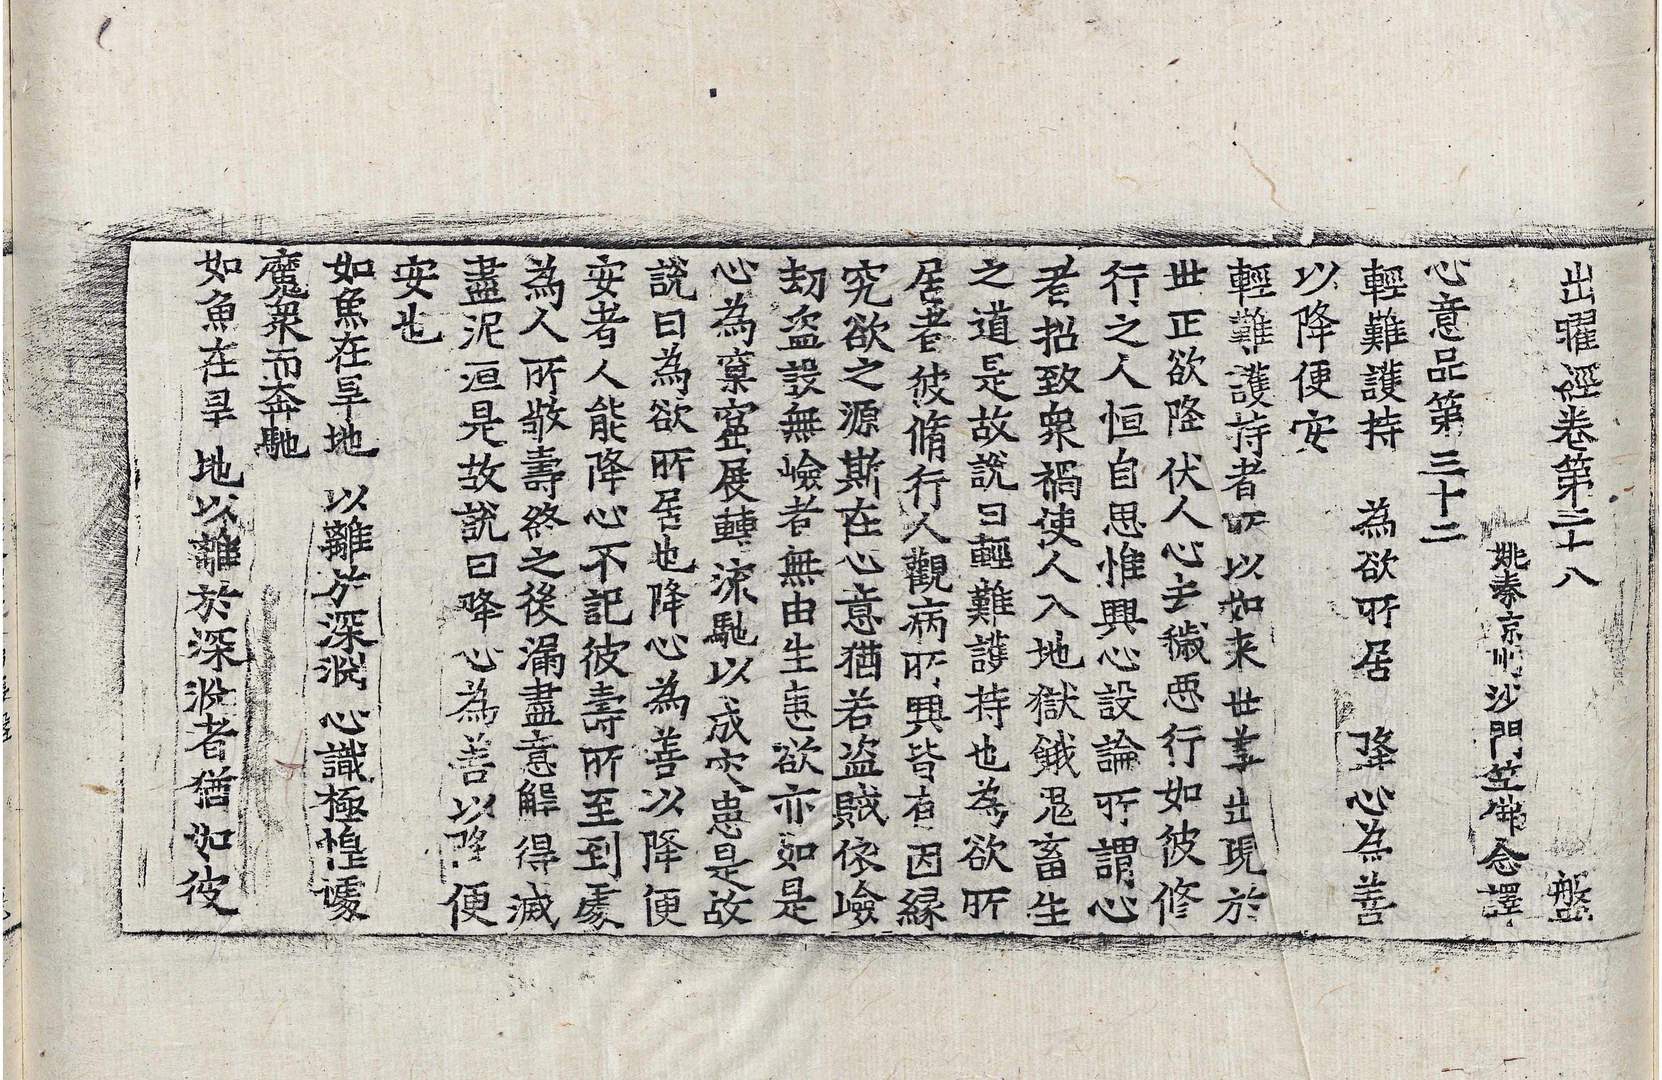 出曜逕卷第二十八 盤
姚秦京州沙門笠佛念譯
心意品第三十二
輕難護持 為欲所居 降心為善
以降便安
輕難護持者所以如来世尊出現於
世正欲降伏人心去穢惡行如彼修
行之人恒自思惟興心設論所謂心
者招致衆禍使人入地獄餓鬼畜生
之道是故說曰輕難護持也為欲所
居者彼脩行人觀病所興皆有因緣
究欲之源斯在心意猶若盜賊依嶮
刧盜設無嶮者無由生恚欲亦如是
心為窠窟展轉流馳以成灾患是故
說曰為欲所居也降心為善以降便
安者人能降心不記彼壽所至到處
為人所敬壽終之後漏盡意解得滅
盡泥洹是故說曰降心為善以降便
安也
如魚在旱地 以離於深渕 心識極惶懅
魔衆而奔馳
如魚在旱地以離於深渕者猶如彼